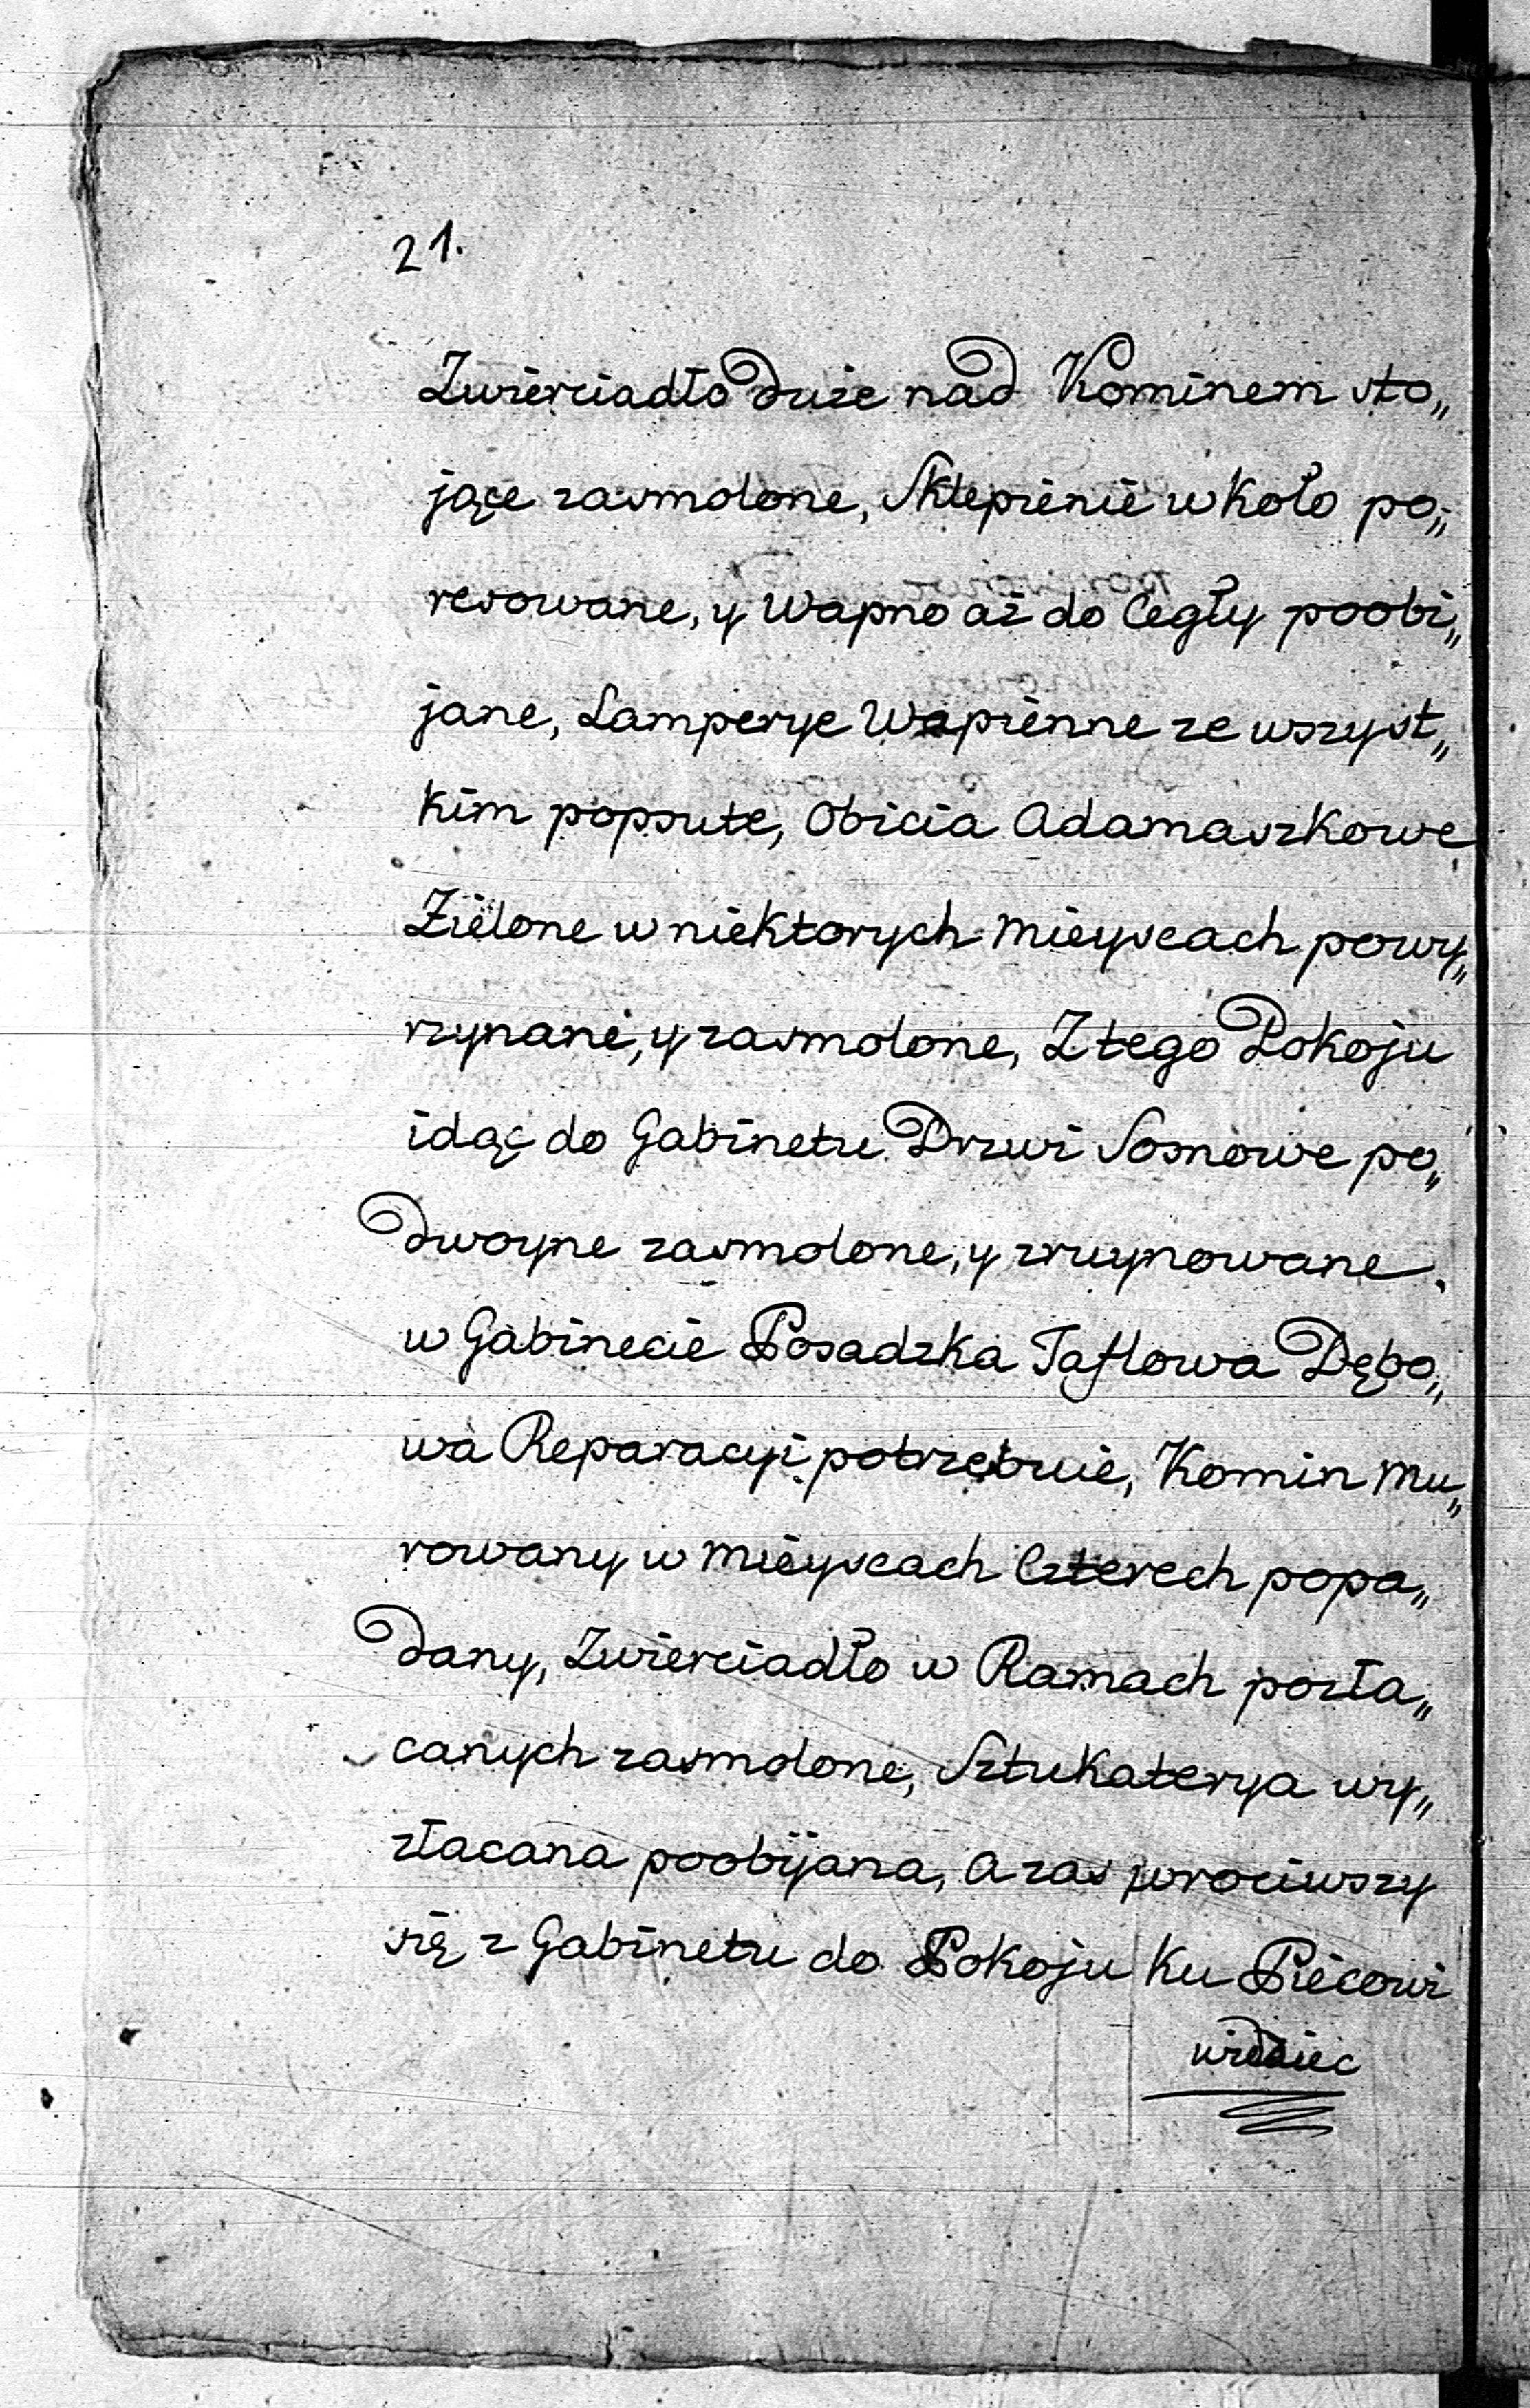 21.
Zwierciadło duże nad Kominem sto„
jące zasmolone, Sklepienie wkoło po„
resowane, y Wapno aż do Cegły poobi„
jane, Lamperye Wapienne ze wszyst„
kim popsute, Obicia Adamaszkowe
Zielone w niektorych mieyscach powy„
rzynane, y zasmolone, Z tego Pokoju
idąc do Gabinetu Drzwi Sosnowe po„
dwoyne zasmolone, y zruynowane.
w Gabinecie Posadzka Taflowa Dębo„
wa Reparacyi potrzebuie, Komin Mu„
rowany w mieyscach Czterech popa„
dany, Zwierciadło w Ramach pozła„
canych zasmolone, Sztukaterya wy„
złacana poobijana, a zas wrociwszy
się z Gabinetu do Pokoju ku Piecowi